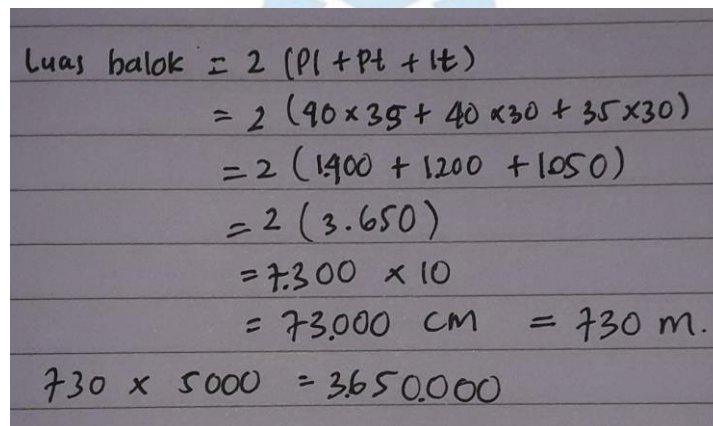 Luas balok = 2 (Pl + Pt + lt)
= 2 (40 x 35 + 40 x 30 + 35 x 30)
= 2 (1.400 + 1.200 + 1.050)
= 2 (3.650)
= 7.300 x 10
= 73.000 cm = 730 m.
730 x 5000 = 3.650.000